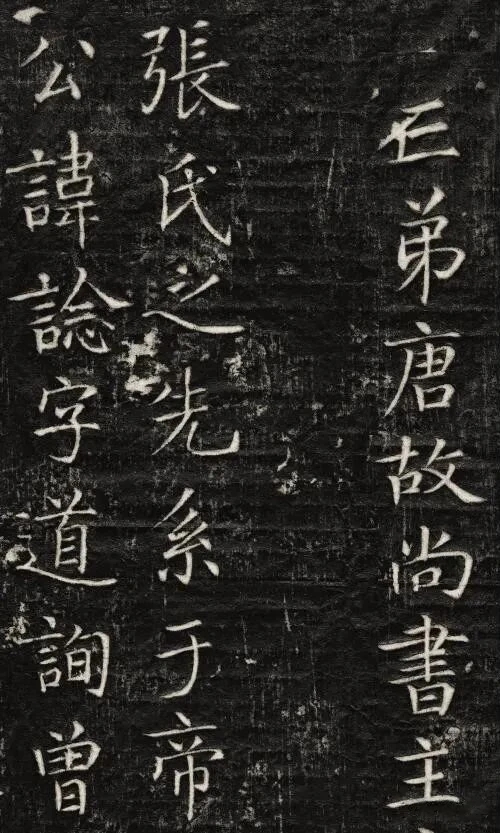 亡弟唐故尚書主
張氏之先系于帝
公諱諗字道詢曾